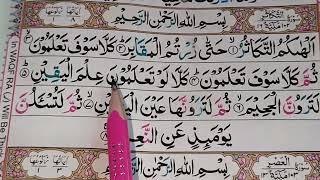 بِسْمِ اللّٰهِ الرَّحْمٰنِ الرَّحِيْمِ
اَلْهٰىكُمُ التَّكَاثُرُ ۙ۝۱ حَتّٰى زُرْتُمُ الْمَقَابِرَ ؕ۝۲ كَلَّا سَوْفَ تَعْلَمُوْنَ ۙ۝۳
ثُمَّ كَلَّا سَوْفَ تَعْلَمُوْنَ ؕ۝۴ كَلَّا لَوْ تَعْلَمُوْنَ عِلْمَ الْيَقِيْنِ ؕ۝۵
لَتَرَوُنَّ الْجَحِيْمَ ۙ۝۶ ثُمَّ لَتَرَوُنَّهَا عَيْنَ الْيَقِيْنِ ۙ۝۷ ثُمَّ لَتُسْـَٔلُنَّ
يَوْمَىِٕذٍ عَنِ النَّعِ
بِسْمِ اللّٰهِ الرَّحْمٰنِ الرَّحِيْمِ